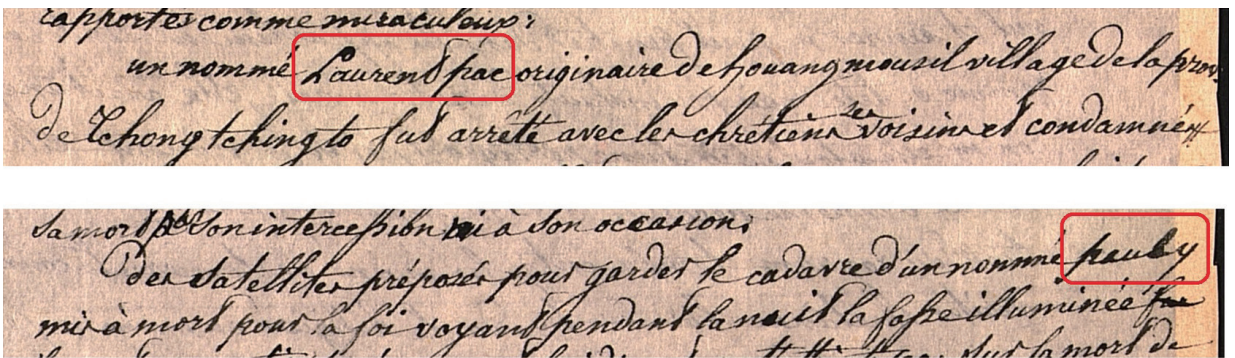 rapportés comme miraculeux:
un nommé Laurent pac originaire de houang mousil village de la prov.
de Tchong tching to fut arrêté avec les chrétiens ses voisins et condamné
sa mort par son intercession ni à son occasion.
Des satellites préposés pour garder le cadavre d'un nommé pauly
mis à mort pour la foi voyant pendant la nuit la fosse illuminée
sur la mort de